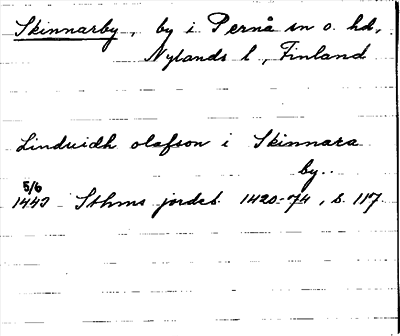 Skinnarby, by i Pernå sn o. hd,
Nylands l, Finland
Lindvidh olafson i Skinnara
by..
5/6
1443 Sthms jordeb. 1420-74, s. 117.